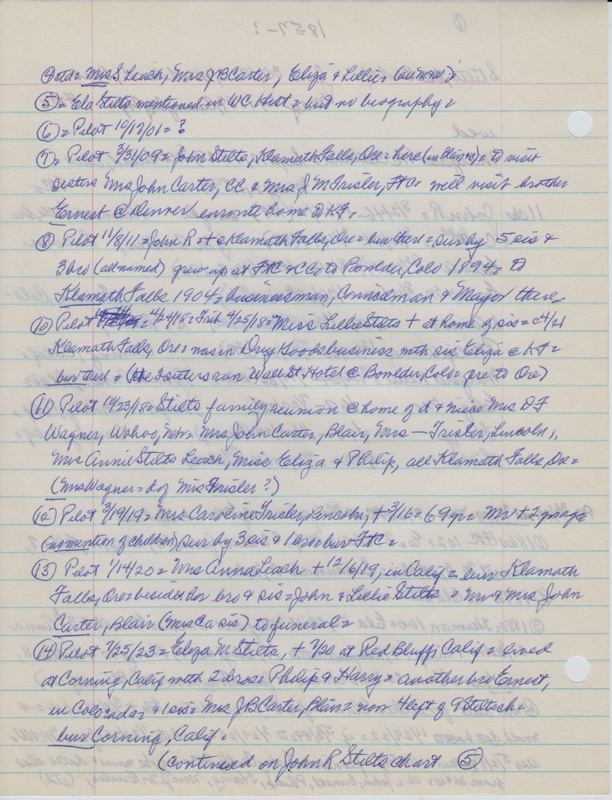 = Mrs S Leach, Mrs J B Carter, Eliza & Lillie
(5) = Ela Stilts mentioned in WC Hist = but no biography =
(6) = Pilot 10/17/01 = ?
(7) Pilot 3/31/09 = John Stilts, Klamath Falls, Ore = here (in Blair) = to visit
sisters Mrs John Carter, CC & Mrs J M Trisler, FtC = will visit brother
Ernest @ Denver enroute home to KF =
(8) Pilot 11/8/11 = John R + @ Klamath Falls, Ore = bur there = sur by 5 sis &
3 bro (all named) grew up at FtC & CC to Boulder, Colo 1894 = to
Klamath Falls 1904 = businessman, Councilman & Mayor there
(10) Pilot = 4/25/18 = Miss Lillie Stilts + at home of sis =
Klamath Falls, Ore = was in Dry Goods business with sis Eliza @ KF =
bur there = (the 2 sisters ran Wall St Hotel @ Boulder, Colo = pre to Ore)
(11) Pilot 10/23/18 = Stilts family reunion @ home of d & niece Mrs D F
Wagner, Wahoo, Neb = Mrs John Carter, Blair, Mrs — Trisler, Lincoln,
Mrs Annie Stilts Leach, Miss Eliza & Philip, all Klamath Falls, Ore =
(Mrs Wagner = d of Mrs Trisler?)
(12) Pilot 3/19/19 = Mrs Caroline Trisler, Lincoln, + 3/16 = 69 yr =
(no mention of children), sur by 3 sis & bur FtC =
(13) Pilot 1/14/20 = Mrs Anna Leach + 12/6/19, in Calif = bur Klamath
Falls, Ore = beside her bro & sis = John & Lillie Stilts = Mr & Mrs John
Carter, Blair (Mrs C a sis) to funeral =
(14) Pilot 7/25/23 = Eliza M Stilts, + 7/20 at Red Bluff, Calif = lived
at Corning, Calif with 2 bros = Philip & Harry = another bro Ernest,
in Colorado & 1 sis = Mrs J B Carter, Blair = now 4 left of 9 Stilts ch =
bur Corning, Calif =
(Continued on John R Stilts chart (5)